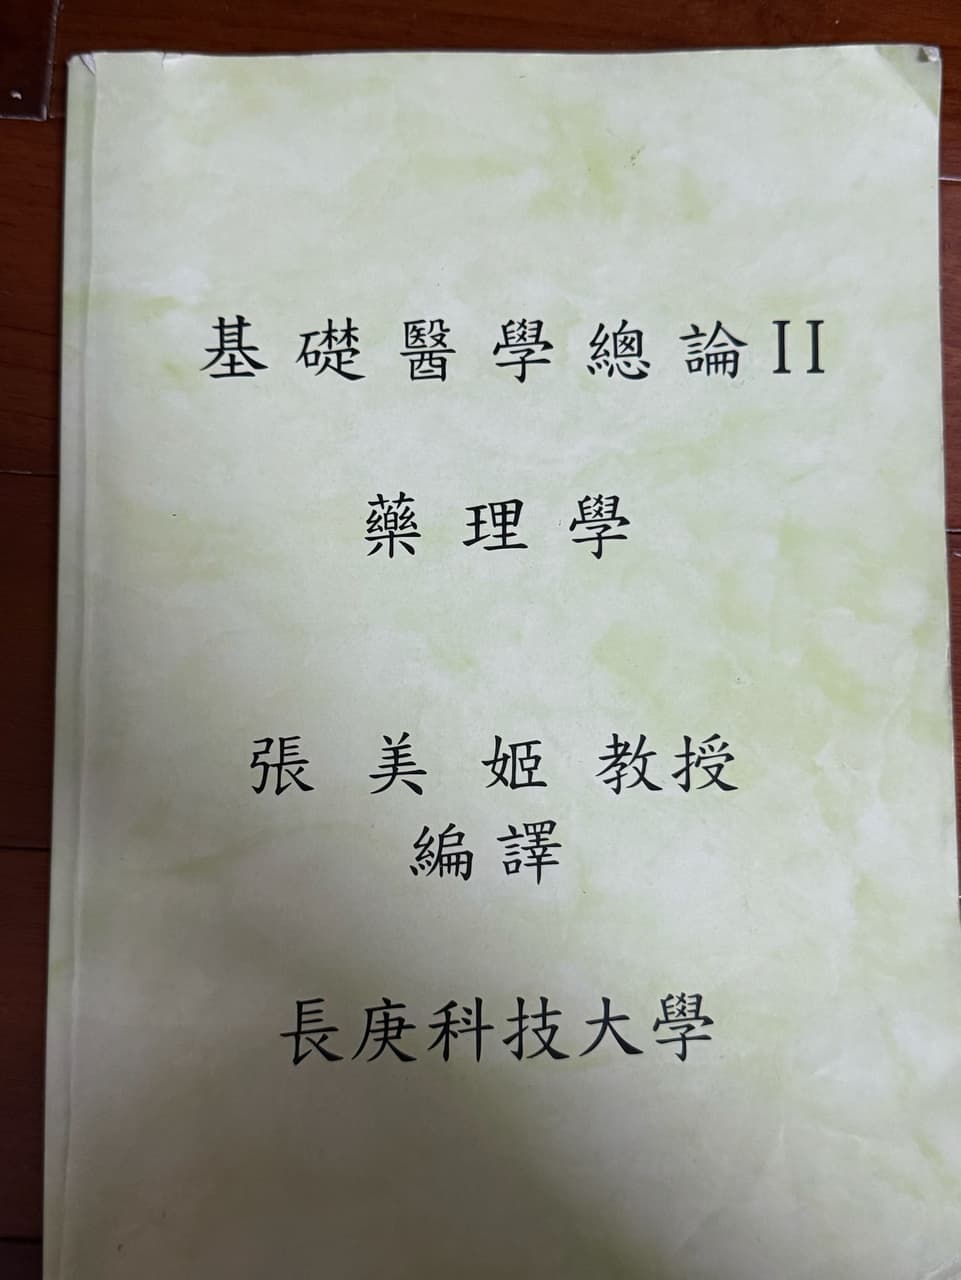 基礎醫學總論II
藥理學
張美姬教授
編譯
長庚科技大學